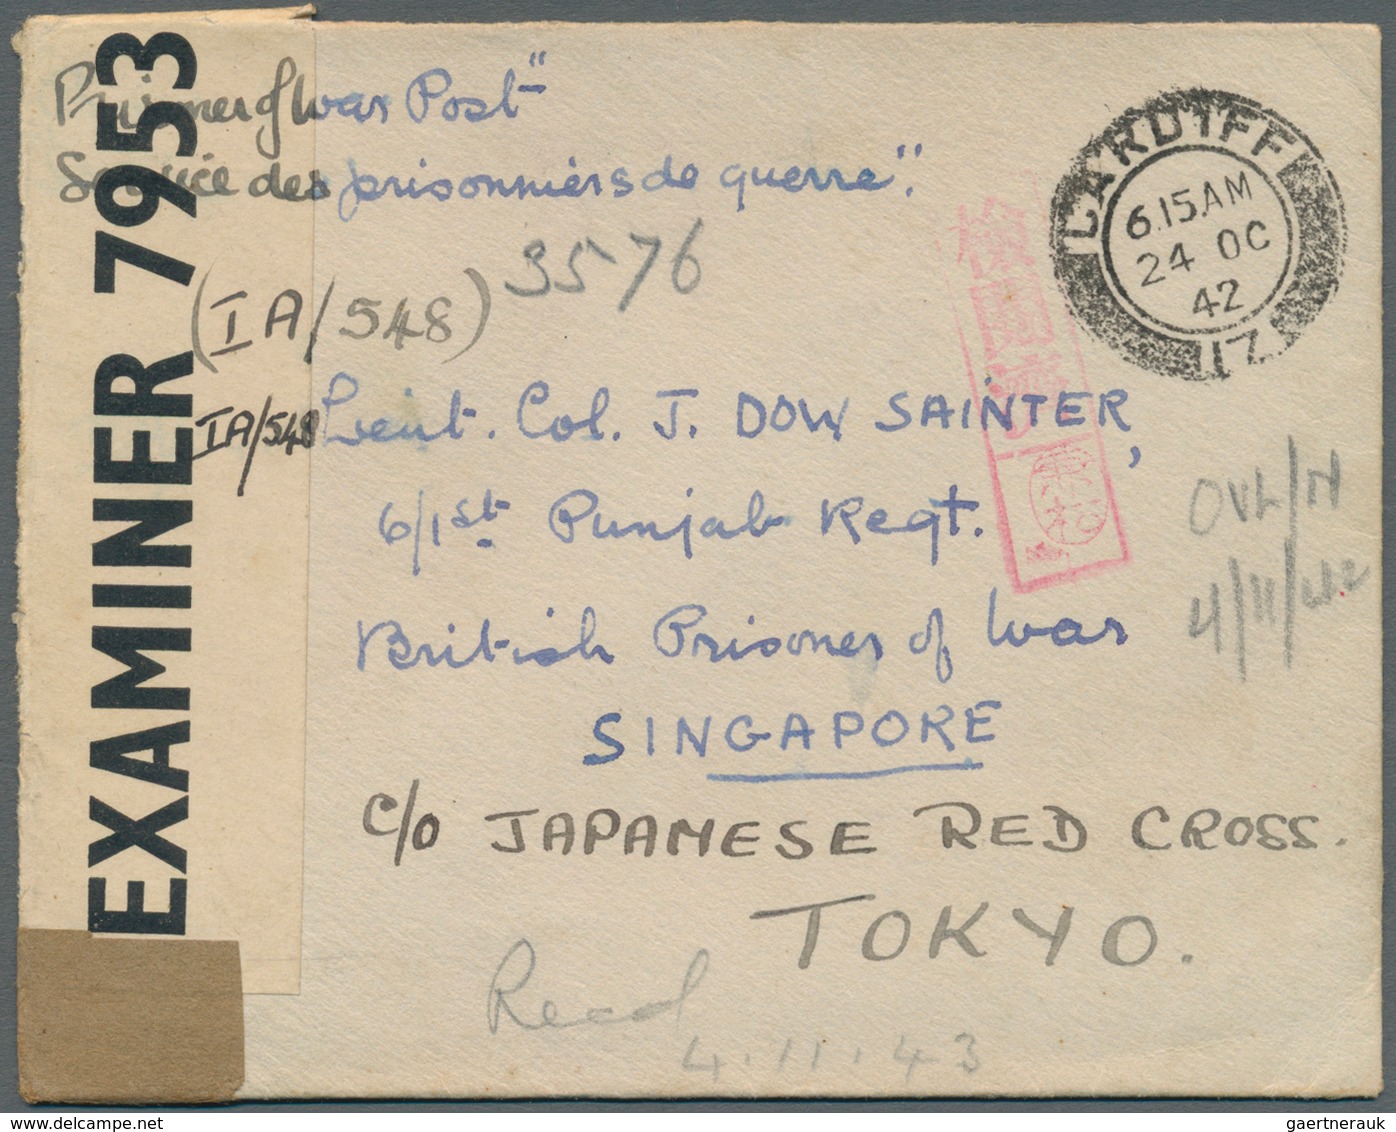 Prisoner of War Post"
Service des prisonniers de guerre".
EXAMINER 7953
CARDIFF
6.15 AM
24 OC
42
(IA/548) 3576
IA/548 Lieut. Col. J. DOW SAINTER,
6/1st Punjab Regt.
British Prisoner of War
SINGAPORE
C/O JAPANESE RED CROSS.
TOKYO.
OVL/N
4/11/42
Recd
4.11.43
檢閱濟
gaertnerauk